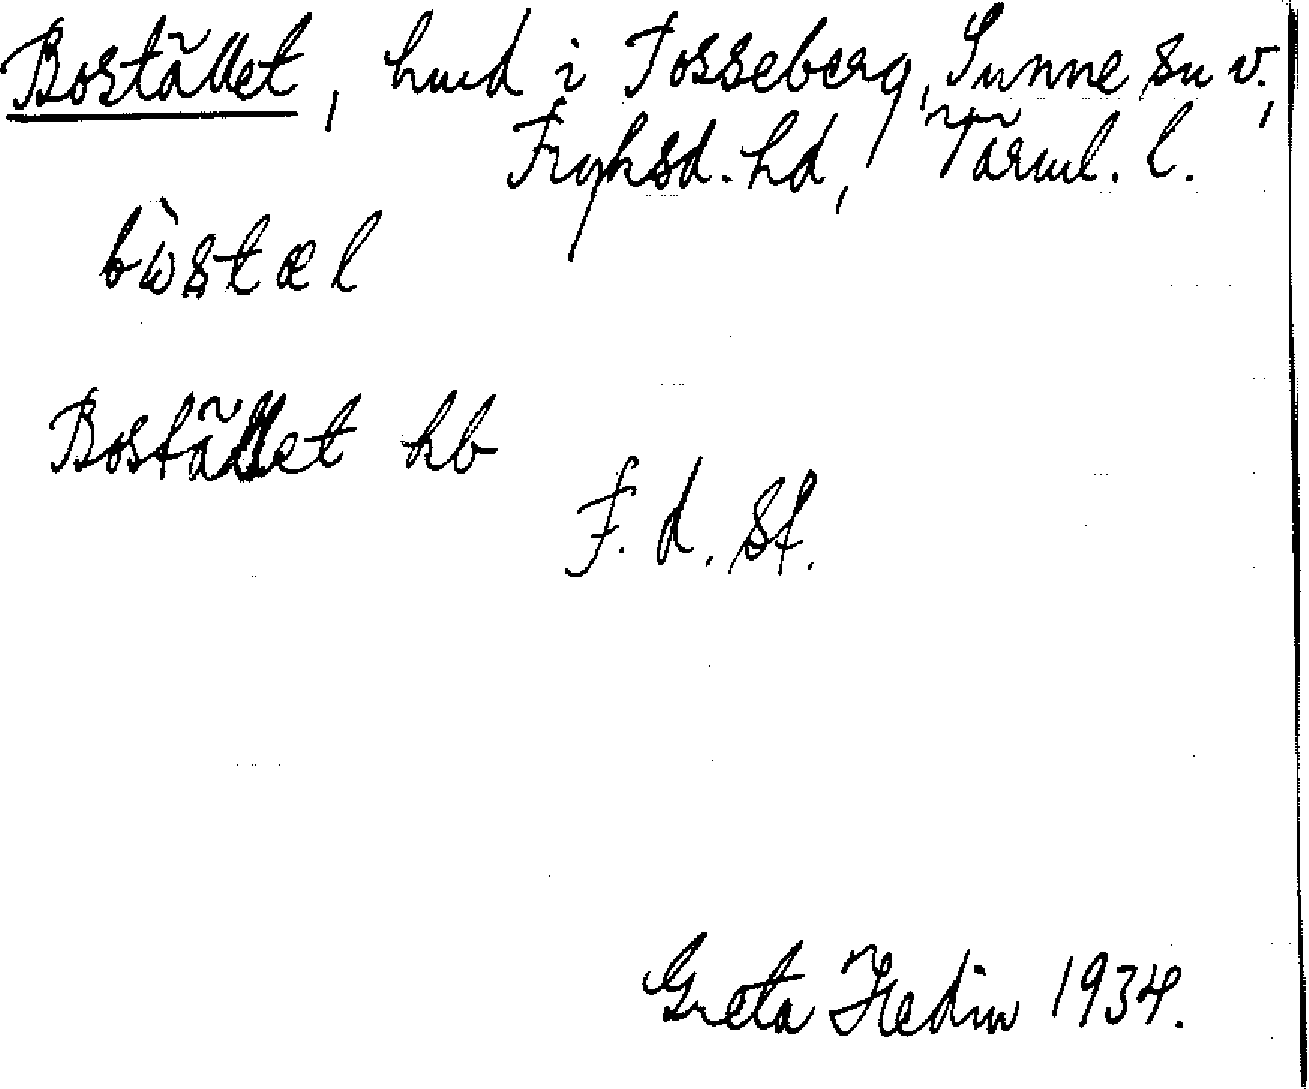 Bostället, hmd i Tosseberg, Sunne sn v.,
Fryksd. hd, Värml. l.
bẁstæl
Bostället hb
F. d. st.
Greta Hedin 1934.